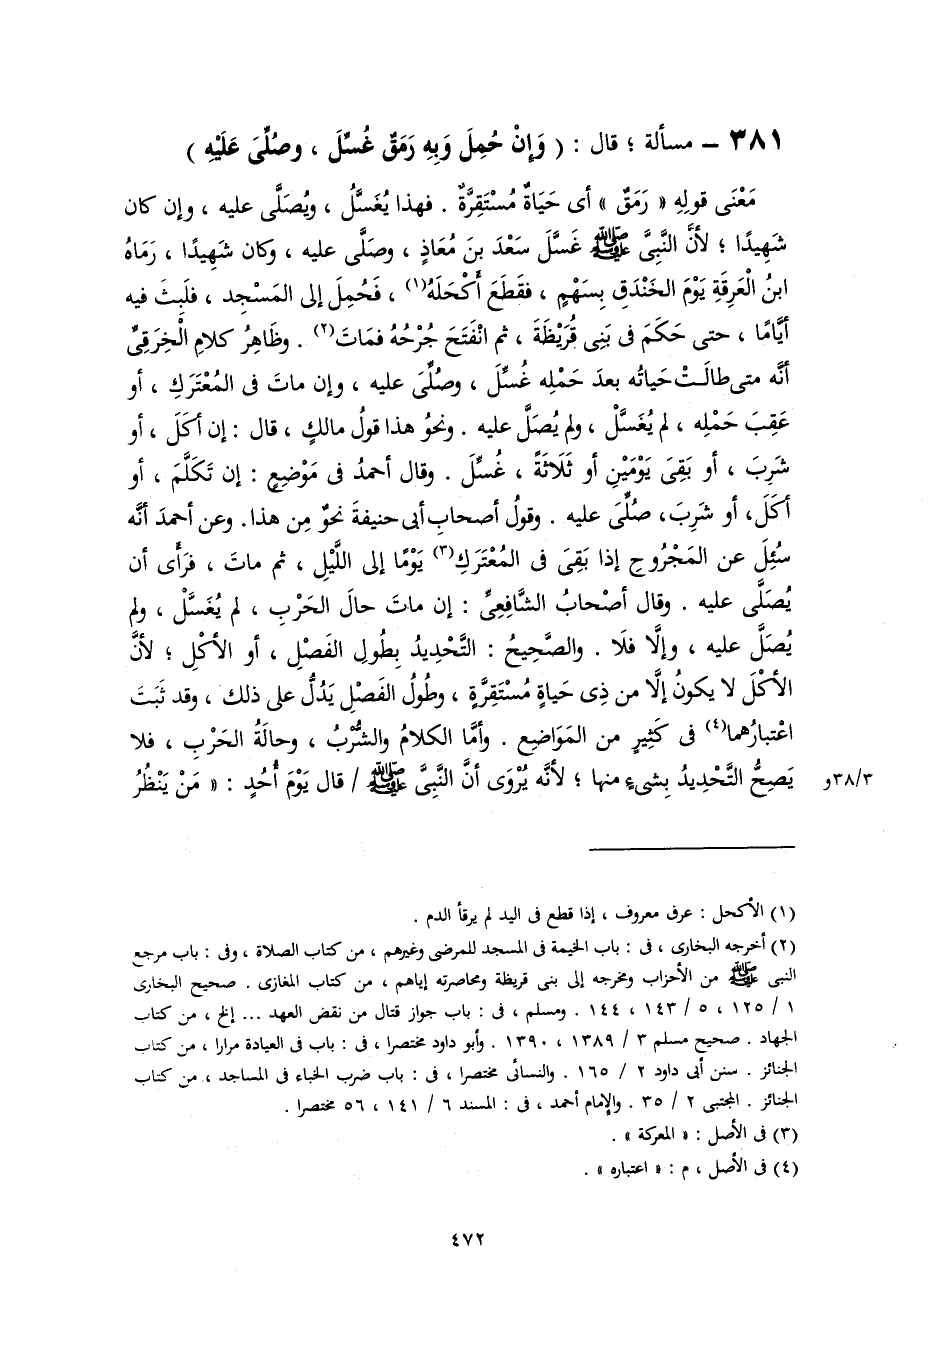 ٣٨١ – مسألة ؛ قال : ( وَإِنْ حُمِلَ وَبِهِ رَمَقٌ غُسِّلَ ، وصُلِّىَ عَلَيْهِ )
مَعْنَى قولِهِ « رَمَقٌ » أى حَيَاةٌ مُسْتَقِرَّةٌ . فهذا يُغَسَّلُ ، ويُصَلَّى عليه ، وإن كان
شَهِيدًا ؛ لأنَّ النَّبِىَّ ﷺ غَسَّلَ سَعْدَ بنَ مُعَاذٍ ، وصَلَّى عليه ، وكان شَهِيدًا ، رَمَاهُ
ابنُ الْعَرِقَةِ يَوْمَ الخَنْدَقِ بِسَهْمٍ ، فقَطَعَ أَكْحَلَهُ(١) ، فَحُمِلَ إلى المَسْجِدِ ، فلَبِثَ فيه
أيَّامًا ، حتى حَكَمَ فى بَنِى قُرَيْظَةَ ، ثم انْفَتَحَ جُرْحُهُ فمَاتَ(٢) . وظَاهِرُ كلامِ الْخِرَقِىِّ
أنَّه متى طالَتْ حَياتُه بعدَ حَمْلِه غُسِّلَ ، وصُلِّىَ عليه ، وإن ماتَ فى المُعْتَرَكِ ، أو
عَقِبَ حَمْلِه ، لم يُغَسَّلْ ، ولم يُصَلَّ عليه . ونحوُ هذا قولُ مالكٍ ، قال : إن أكَلَ ، أو
شَرِبَ ، أو بَقِىَ يَوْمَيْنِ أو ثَلَاثَةً ، غُسِّلَ . وقال أحمدُ فى مَوْضِعٍ : إن تَكَلَّمَ ، أو
أكَلَ، أو شَرِبَ، صُلِّىَ عليه . وقولُ أصحابِ أبى حنيفةَ نحوٌ مِن هذا. وعن أحمدَ أنَّه
سُئِلَ عن المَجْرُوحِ إذا بَقِىَ فى المُعْتَرَكِ(٣) يَوْمًا إلى اللَّيْلِ ، ثم ماتَ ، فرَأَى أن
يُصَلَّى عليه . وقال أصْحابُ الشَّافِعِىِّ : إن ماتَ حالَ الحَرْبِ ، لم يُغَسَّلْ ، ولم
يُصَلَّ عليه ، وإلَّا فلَا . والصَّحِيحُ : التَّحْدِيدُ بِطُولِ الفَصْلِ ، أو الأكْلِ ؛ لأنَّ
الأكْلَ لا يكونُ إلَّا من ذِى حَياةٍ مُسْتَقِرَّةٍ ، وطُولُ الفَصْلِ يَدُلُّ على ذلك ، وقد ثَبَتَ
اعْتبارُهما(٤) فى كَثِيرٍ من المَوَاضِعِ . وأمَّا الكلامُ والشُّرْبُ ، وحالَةُ الحَرْبِ ، فلا
يَصِحُّ التَّحْدِيدُ بِشىءٍ منها ؛ لأنَّه يُرْوَى أنَّ النَّبِىَّ ﷺ / قال يَوْمَ أُحُدٍ : « مَنْ يَنْظُرُ
٣٨/٣و
(١) الأكحل : عرق معروف ، إذا قطع فى اليد لم يرقأ الدم .
(٢) أخرجه البخارى ، فى : باب الخيمة فى المسجد للمرضى وغيرهم ، من كتاب الصلاة ، وفى : باب مرجع
النبى ﷺ من الأحزاب ومخرجه إلى بنى قريظة ومحاصرته إياهم ، من كتاب المغازى . صحيح البخارى
١ / ١٢٥ ، ٥ / ١٤٣ ، ١٤٤ . ومسلم ، فى : باب جواز قتال من نقض العهد ... إلخ ، من كتاب
الجهاد . صحيح مسلم ٣ / ١٣٨٩ ، ١٣٩٠ . وأبو داود مختصرا ، فى : باب فى العيادة مرارا ، من كتاب
الجنائز . سنن أبى داود ٢ / ١٦٥ . والنسائى مختصرا ، فى : باب ضرب الخباء فى المساجد ، من كتاب
الجنائز . المجتبى ٢ / ٣٥ . والإمام أحمد ، فى : المسند ٦ / ١٤١ ، ٥٦ مختصرا .
(٣) فى الأصل : « المعركة » .
(٤) فى الأصل ، م : « اعتباره » .
٤٧٢